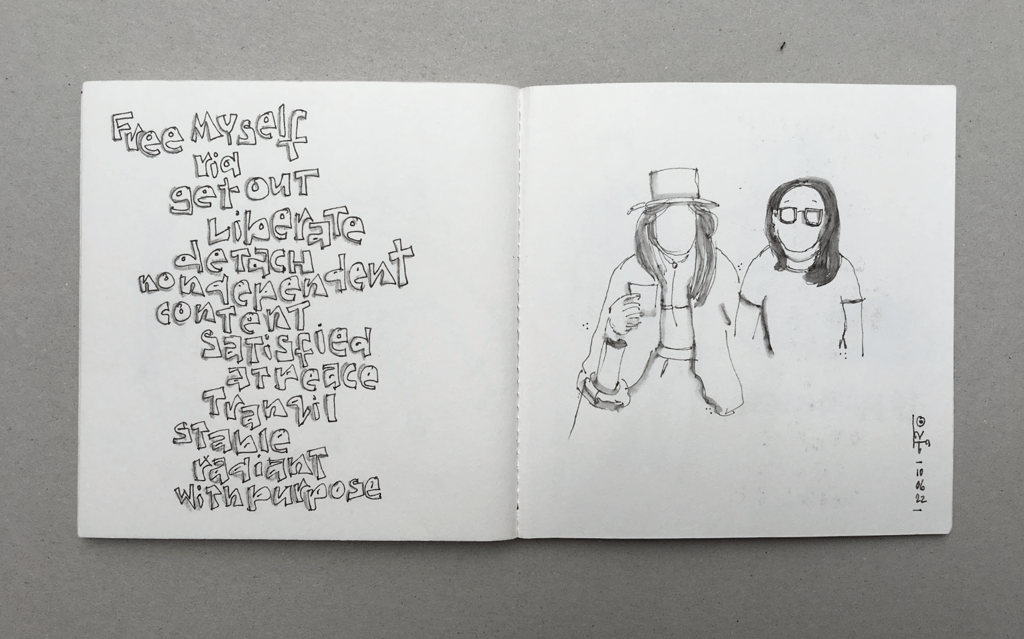 Free Myself
rid
get out
Liberate
detach
nondependent
content
satisfied
at peace
Tranqil
stable
radiant
with purpose
10
06
22